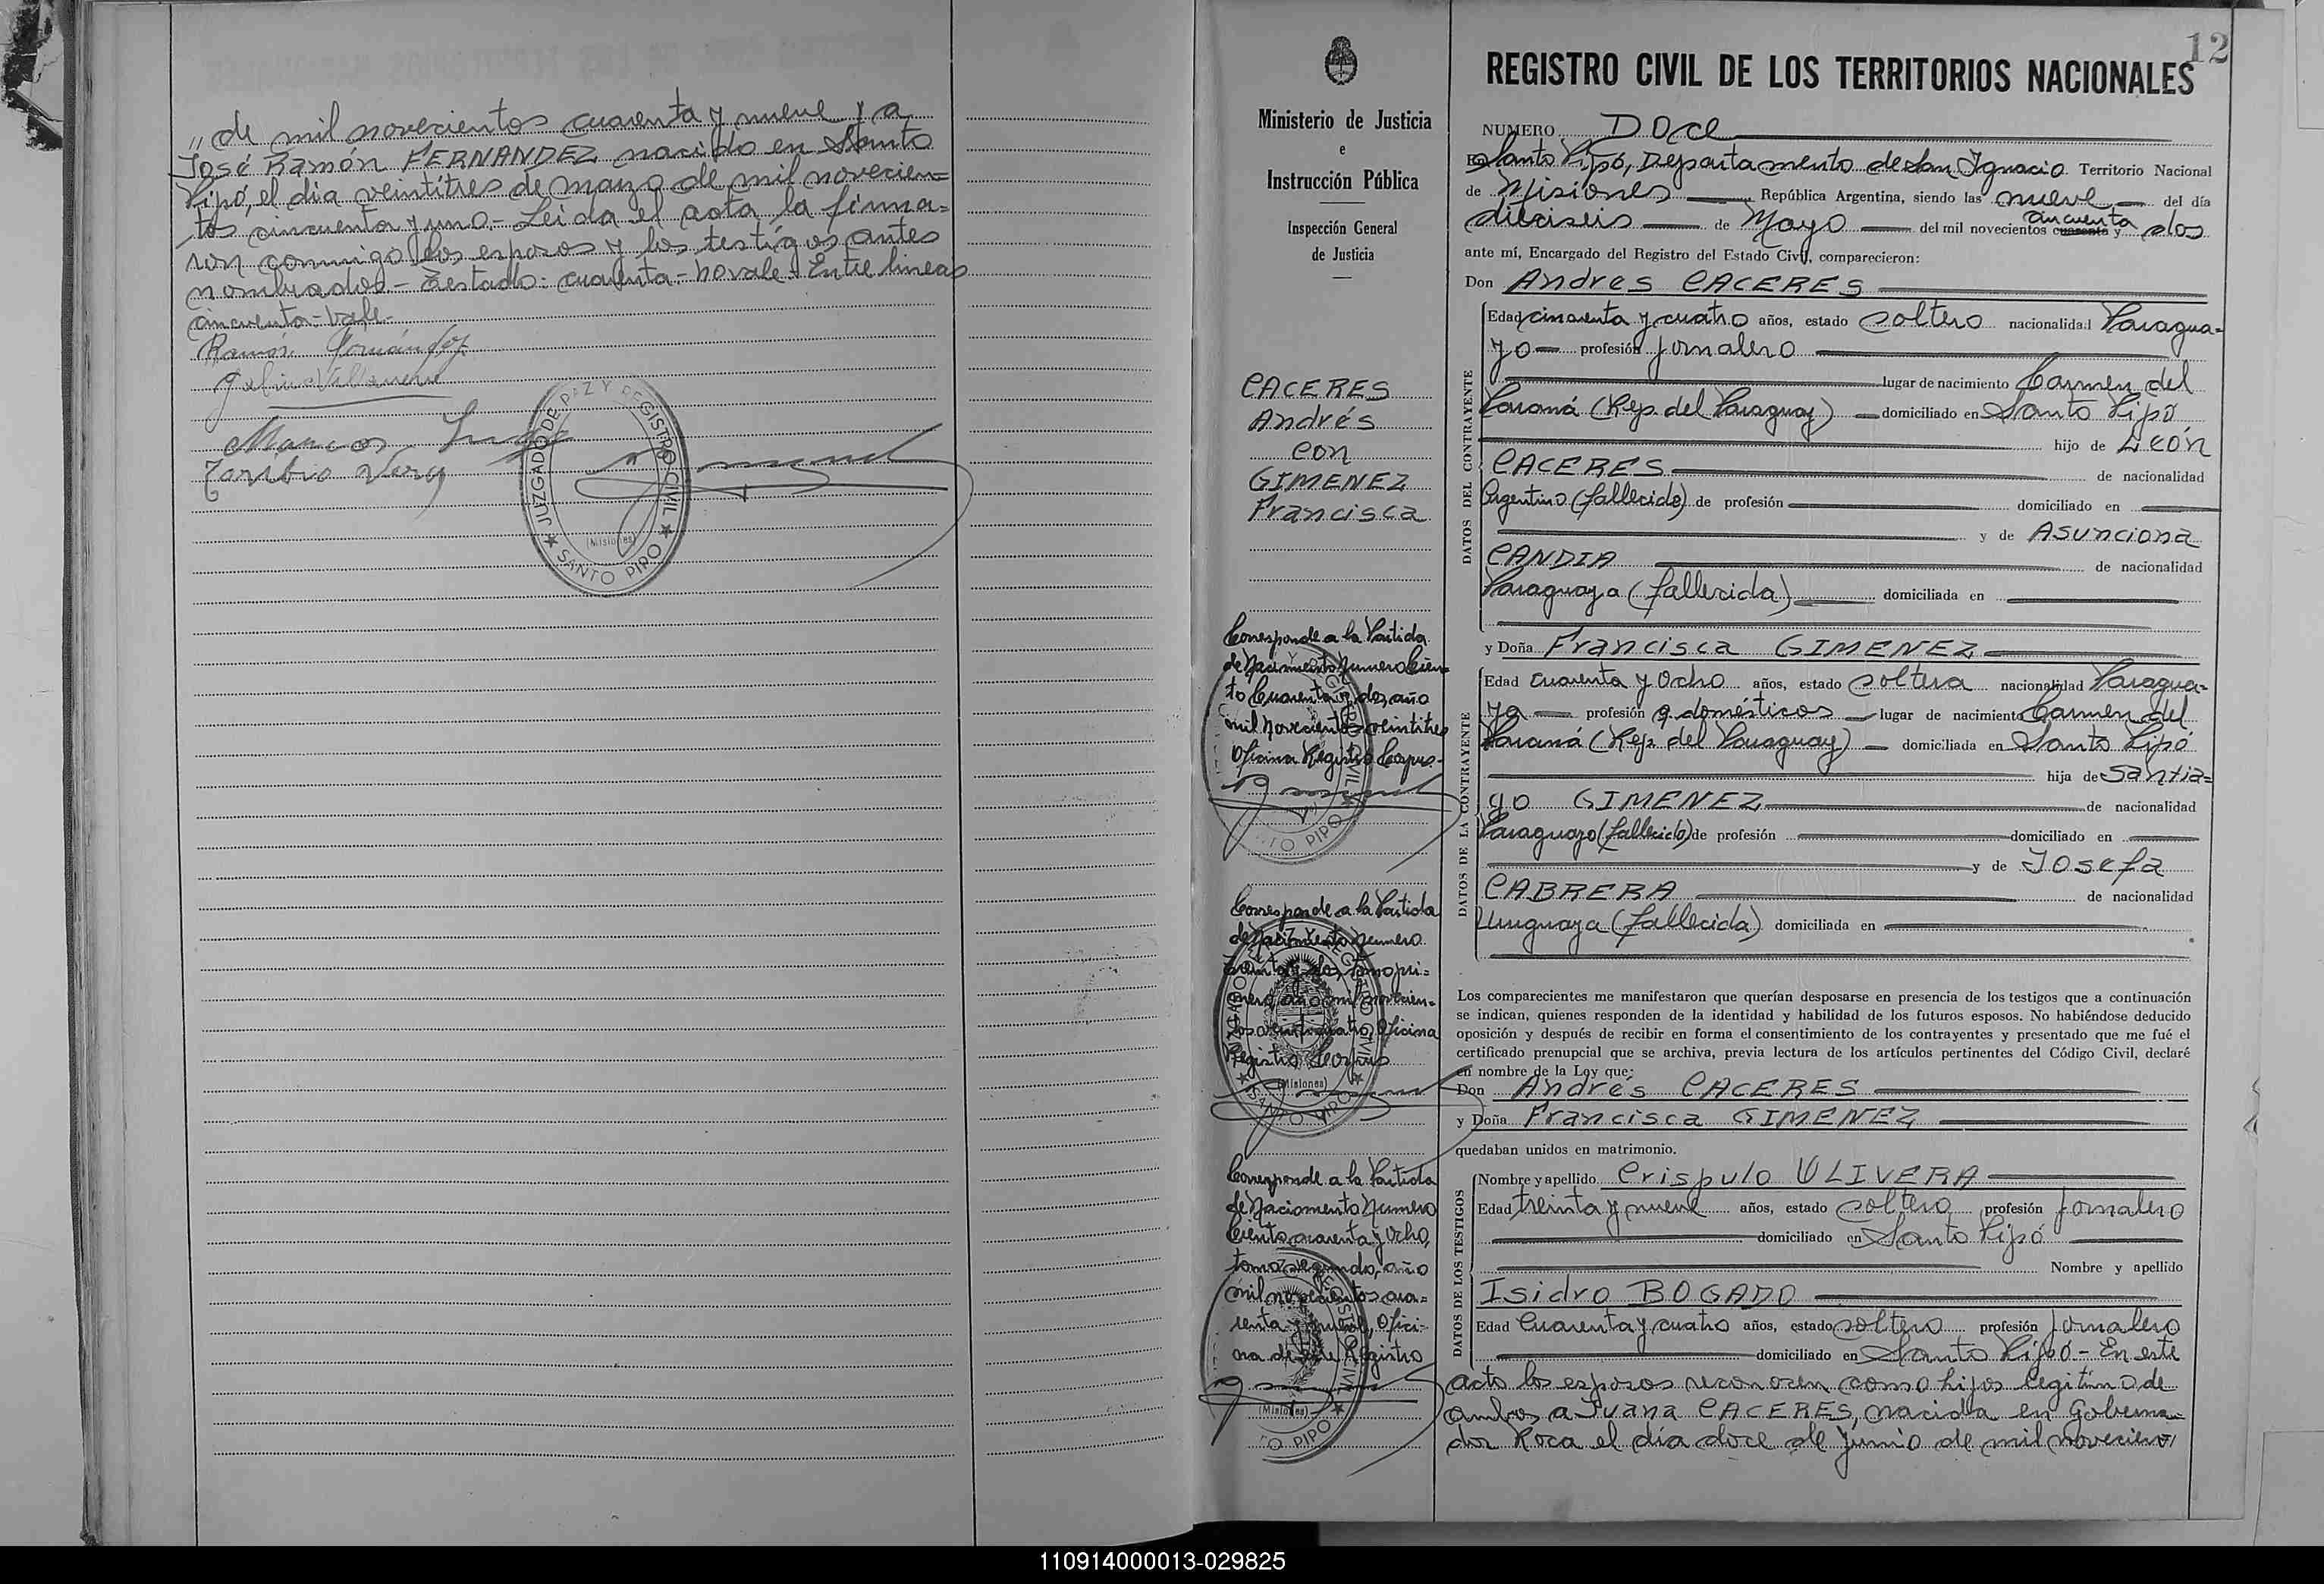 „ de mil novecientos cuarenta y nueve y a
José Ramón FERNANDEZ nacido en Santo
Pipó, el dia veintitres de marzo de mil novecien=
tos cincuenta y uno.- Leida el acta la firma=
ron conmigo los esposos y los testigos antes
nombrados.- Testado: cuarenta - no vale - Entre lineas
cincuenta - Vale-
Ramón Fernández
Marcos
Toribio Vera
JUZGADO DE PAZ Y REGISTRO CIVIL
(Misiones)
SANTO PIPO
12
Ministerio de Justicia
e
Instrucción Pública
Inspección General
de Justicia
CACERES
Andrés
con
GIMENEZ
Francisca
Corresponde a la Partida
de Nacimiento Numero Cien=
to Cuarenta y dos, año
mil Novecientos veintitres
Oficina Registro Corpus-
Corresponde a la Partida
de Nacimiento Numero
Treinta y dos, tomo pri=
mero, año mil novecien=
tos cuarenta, Oficina
Registro Corpus
(Misiones)
SANTO PIPO
Corresponde a la Partida
de Nacimiento Numero
Ciento cuarenta y Ocho,
tomo segundo, año
mil novecientos cua=
renta y nueve, Ofici-
na de este Registro
(Misiones)
REGISTRO CIVIL DE LOS TERRITORIOS NACIONALES
NUMERO Doce
En Santo Pipó, Departamento de San Ignacio Territorio Nacional
de Misiones República Argentina, siendo las nueve del día
dieciseis de Mayo del mil novecientos cuarenta y cincuenta dos
ante mí, Encargado del Registro del Estado Civil, comparecieron:
Don Andres CACERES
DATOS DEL CONTRAYENTE
Edad cincuenta y cuatro años, estado soltero nacionalidad Paragua=
yo profesión jornalero
lugar de nacimiento Carmen del
Paraná (Rep. del Paraguay) domiciliado en Santo Pipó
hijo de León
CACERES de nacionalidad
Argentino (fallecido) de profesión domiciliado en
y de Asunciona
CANDIA de nacionalidad
Paraguaya (fallecida) domiciliada en
y Doña Francisca GIMENEZ
DATOS DE LA CONTRAYENTE
Edad Cuarenta y Ocho años, estado soltera nacionalidad Paragua=
ya profesión q. domésticos lugar de nacimiento Carmen del
Paraná (Rep. del Paraguay) domiciliada en Santo Pipó
hija de Santia=
go GIMENEZ de nacionalidad
Paraguayo (fallecido) de profesión domiciliado en
y de Josefa
CABRERA de nacionalidad
Uruguaya (fallecida) domiciliada en
Los comparecientes me manifestaron que querían desposarse en presencia de los testigos que a continuación
se indican, quienes responden de la identidad y habilidad de los futuros esposos. No habiéndose deducido
oposición y después de recibir en forma el consentimiento de los contrayentes y presentado que me fué el
certificado prenupcial que se archiva, previa lectura de los artículos pertinentes del Código Civil, declaré
en nombre de la Ley que:
Don Andrés CACERES
y Doña Francisca GIMENEZ
quedaban unidos en matrimonio.
DATOS DE LOS TESTIGOS
Nombre y apellido Crispulo OLIVERA
Edad treinta y nueve años, estado soltero profesión jornalero
domiciliado en Santo Pipó
Nombre y apellido
Isidro BOGADO
Edad Cuarenta y cuatro años, estado soltero profesión jornalero
domiciliado en Santo Pipó - En este
acto los esposos reconocen como hijos legitimo de
ambos a Juana CACERES, nacida en Goberna=
dor Roca el dia doce de junio de mil novecien=
110914000013-029825